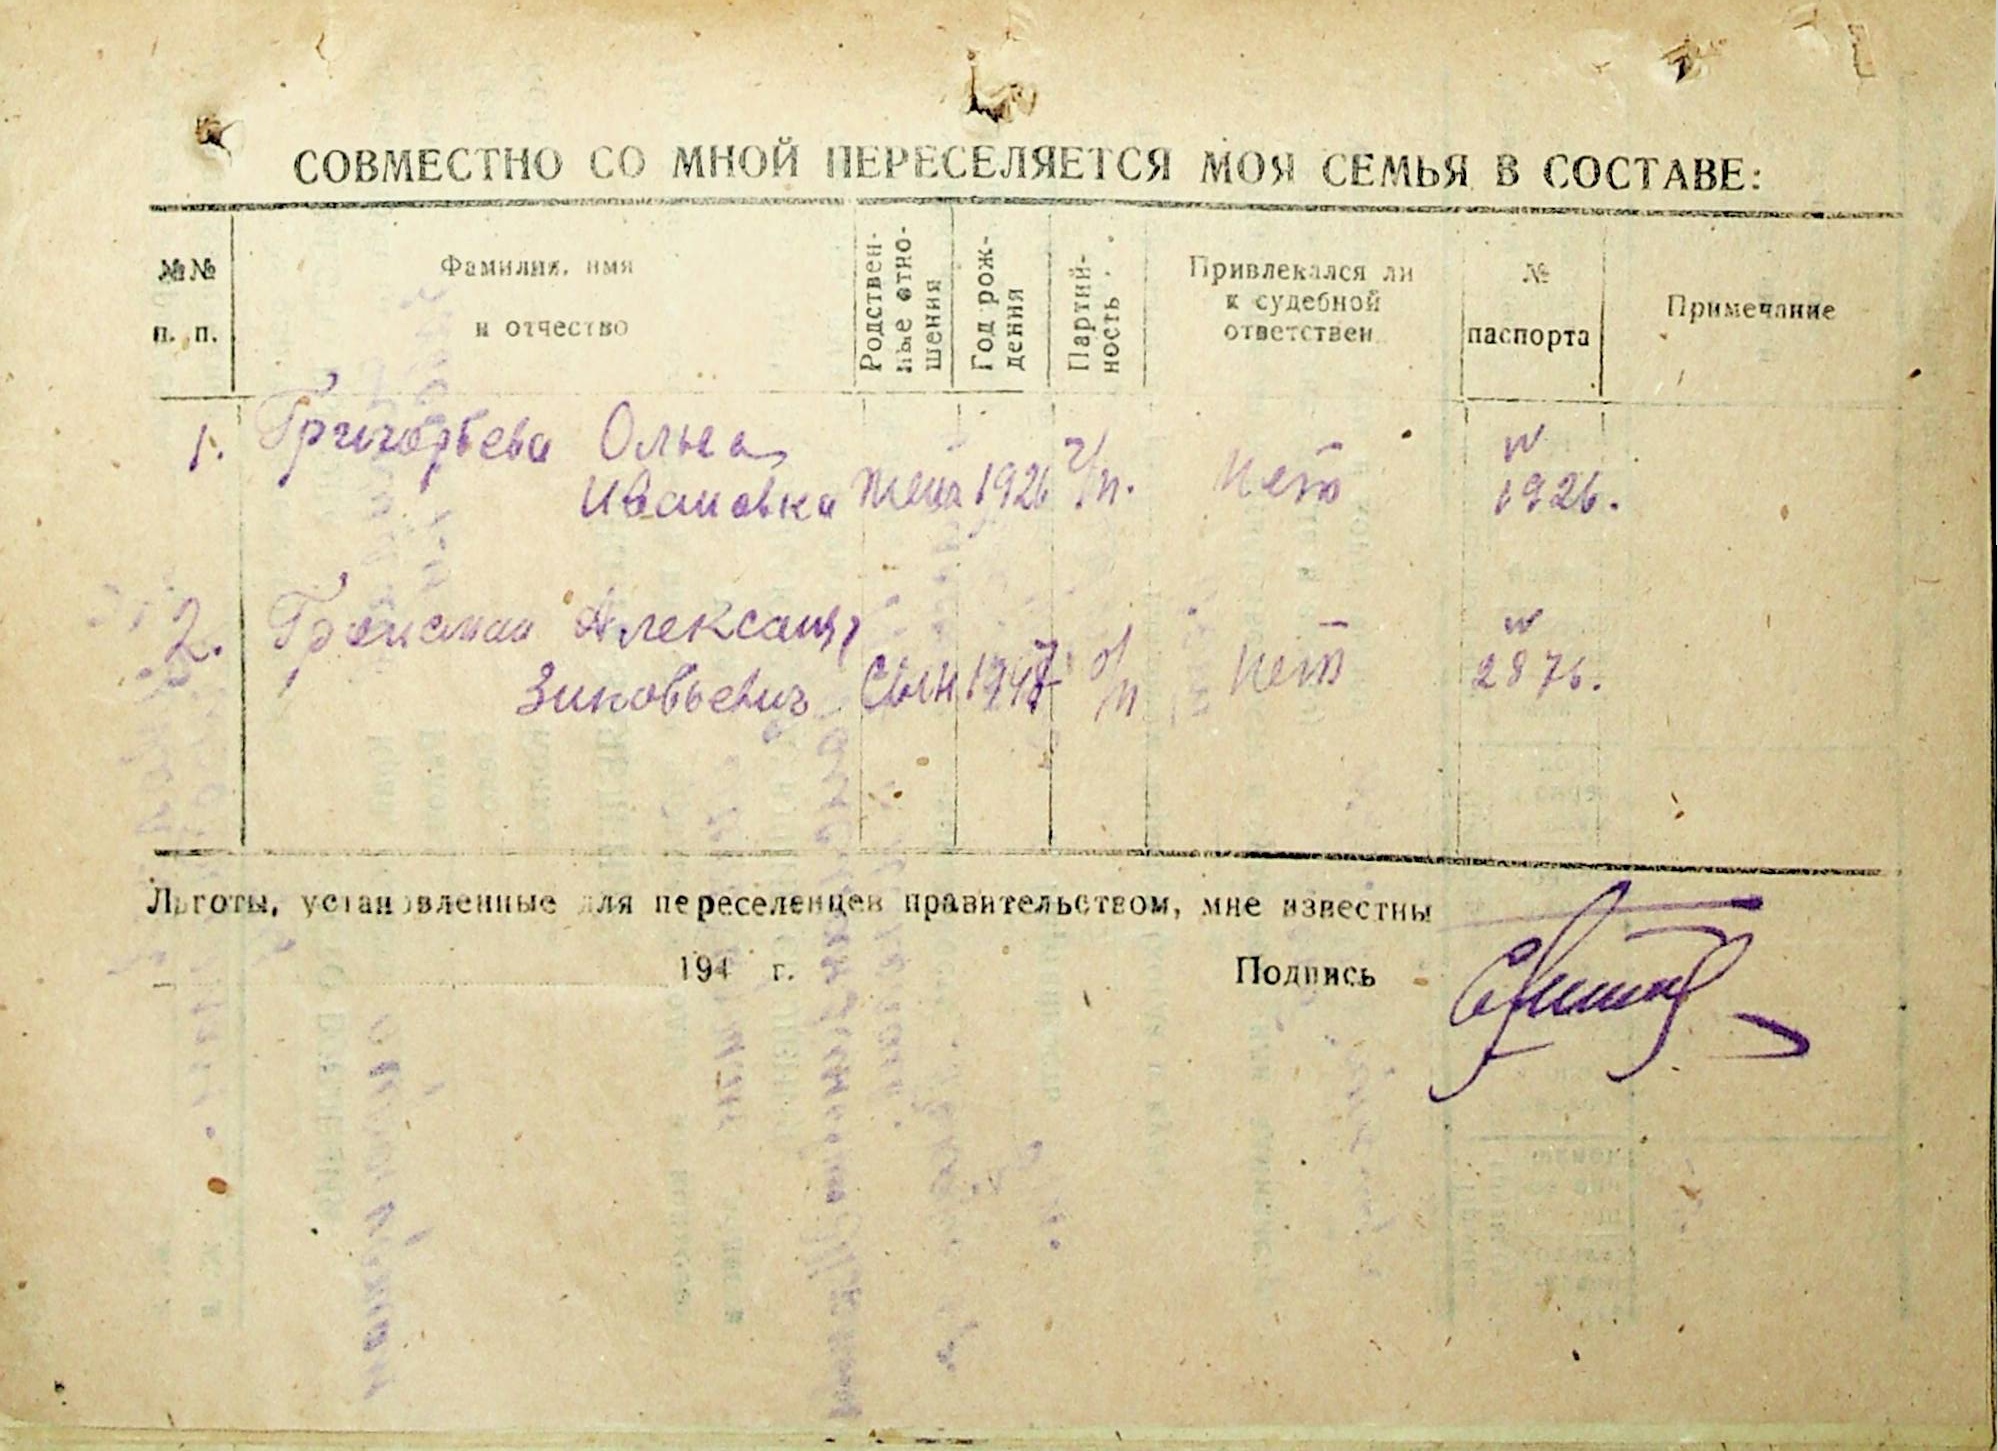 СОВМЕСТНО СО МНОЙ ПЕРЕСЕЛЯЕТСЯ МОЯ СЕМЬЯ В СОСТАВЕ:
№№ п. п.
Фамилия, имя и отчество
Родственные отношения
Год рождения
Партийность
Привлекался ли к судебной ответствен.
№ паспорта
Примечание
1. Григорьева Ольга
Ивановка жена 1926 б/п. нет № 1926.
2. Александр
Зиновьевич сын б/п нет № 2876.
Льготы, установленные для переселенцев правительством, мне известны
194 г. Подпись